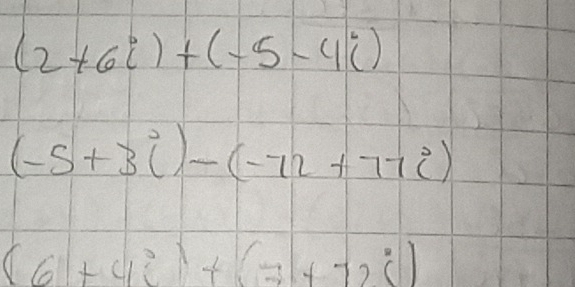 (2+6i)+(-5-4i)
(-5+3i)-(-12+11i)
(6+4i)+(3+12i)